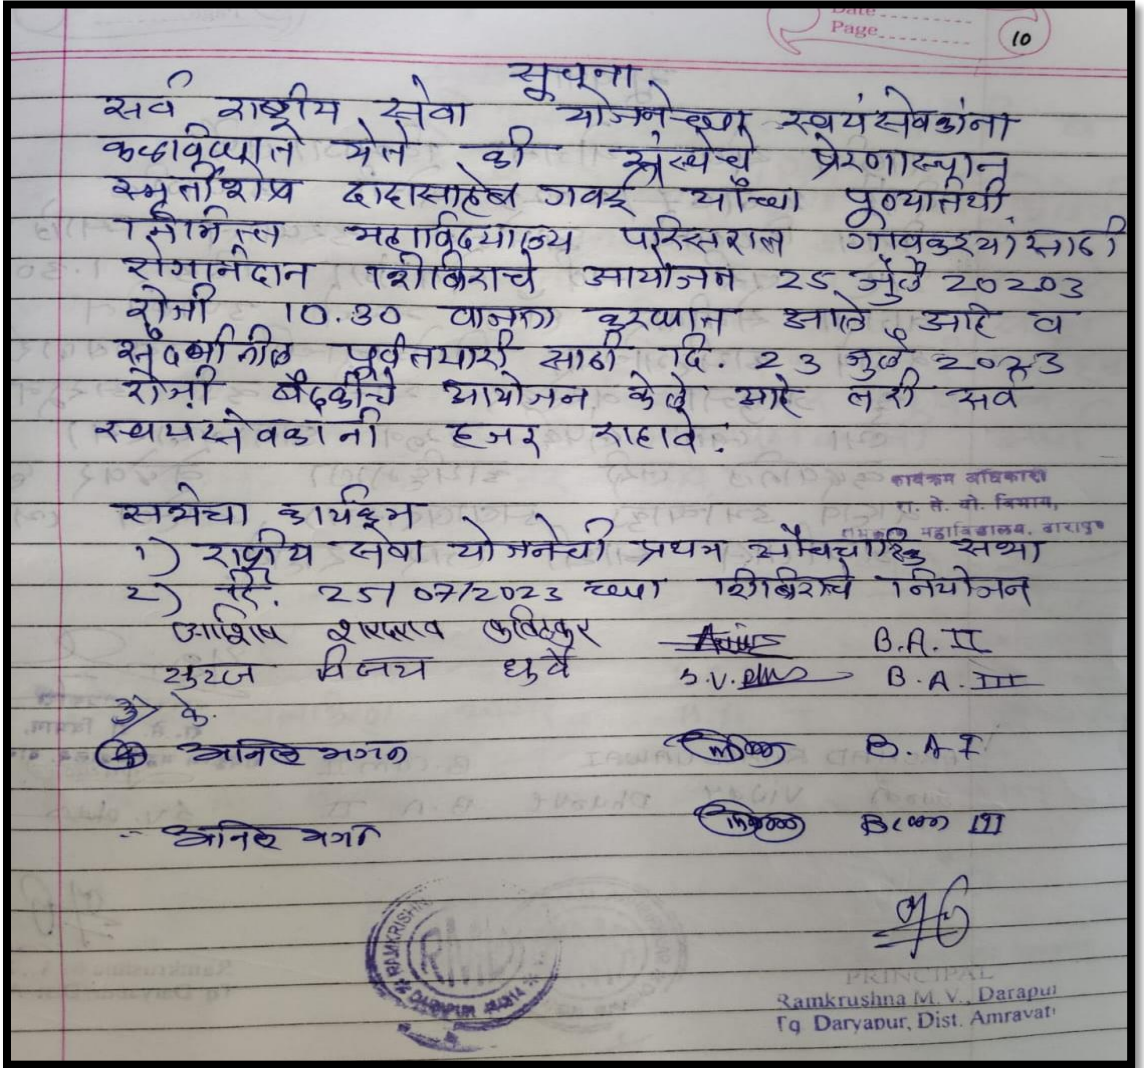 Date
Page
10
सूचना
सर्व राष्ट्रीय सेवा योजनेच्या स्वयंसेवकांना
कळविण्यात येते की संस्थेचे प्रेरणास्थान
स्मृतीशेष दादासाहेब गवई यांच्या पुण्यतिथी
निमित्त महाविद्यालय परिसरात गावकऱ्यांसाठी
रोगनिदान शिबिराचे आयोजन 25 जुलै 20203
रोजी 10.30 वाजता करण्यात आले आहे व
संदर्भातील पूर्वतयारी साठी दि. 23 जुलै 2023
रोजी बैठकीचे आयोजन केले आहे तरी सर्व
स्वयमसेवकांनी हजर राहावे.
कार्यक्रम अधिकारी
रा. से. यो. विभाग,
महाविद्यालय, दारापुर
सभेचा कार्यक्रम
१) राष्ट्रीय सेवा योजनेची प्रथम औपचारिक सभा
२) दि. 25/07/2023 च्या शिबिराचे नियोजन
आशिष शरदराव B.A. II
सुरज विजय धुर्वे B.A. III
3> के.
अनिल मगन B.A I
अनिल मगन III
RAMKRISHN
DARAPUR
PRINCIPAL
Ramkrushna M. V., Darapur
Tq Daryapur, Dist. Amravati